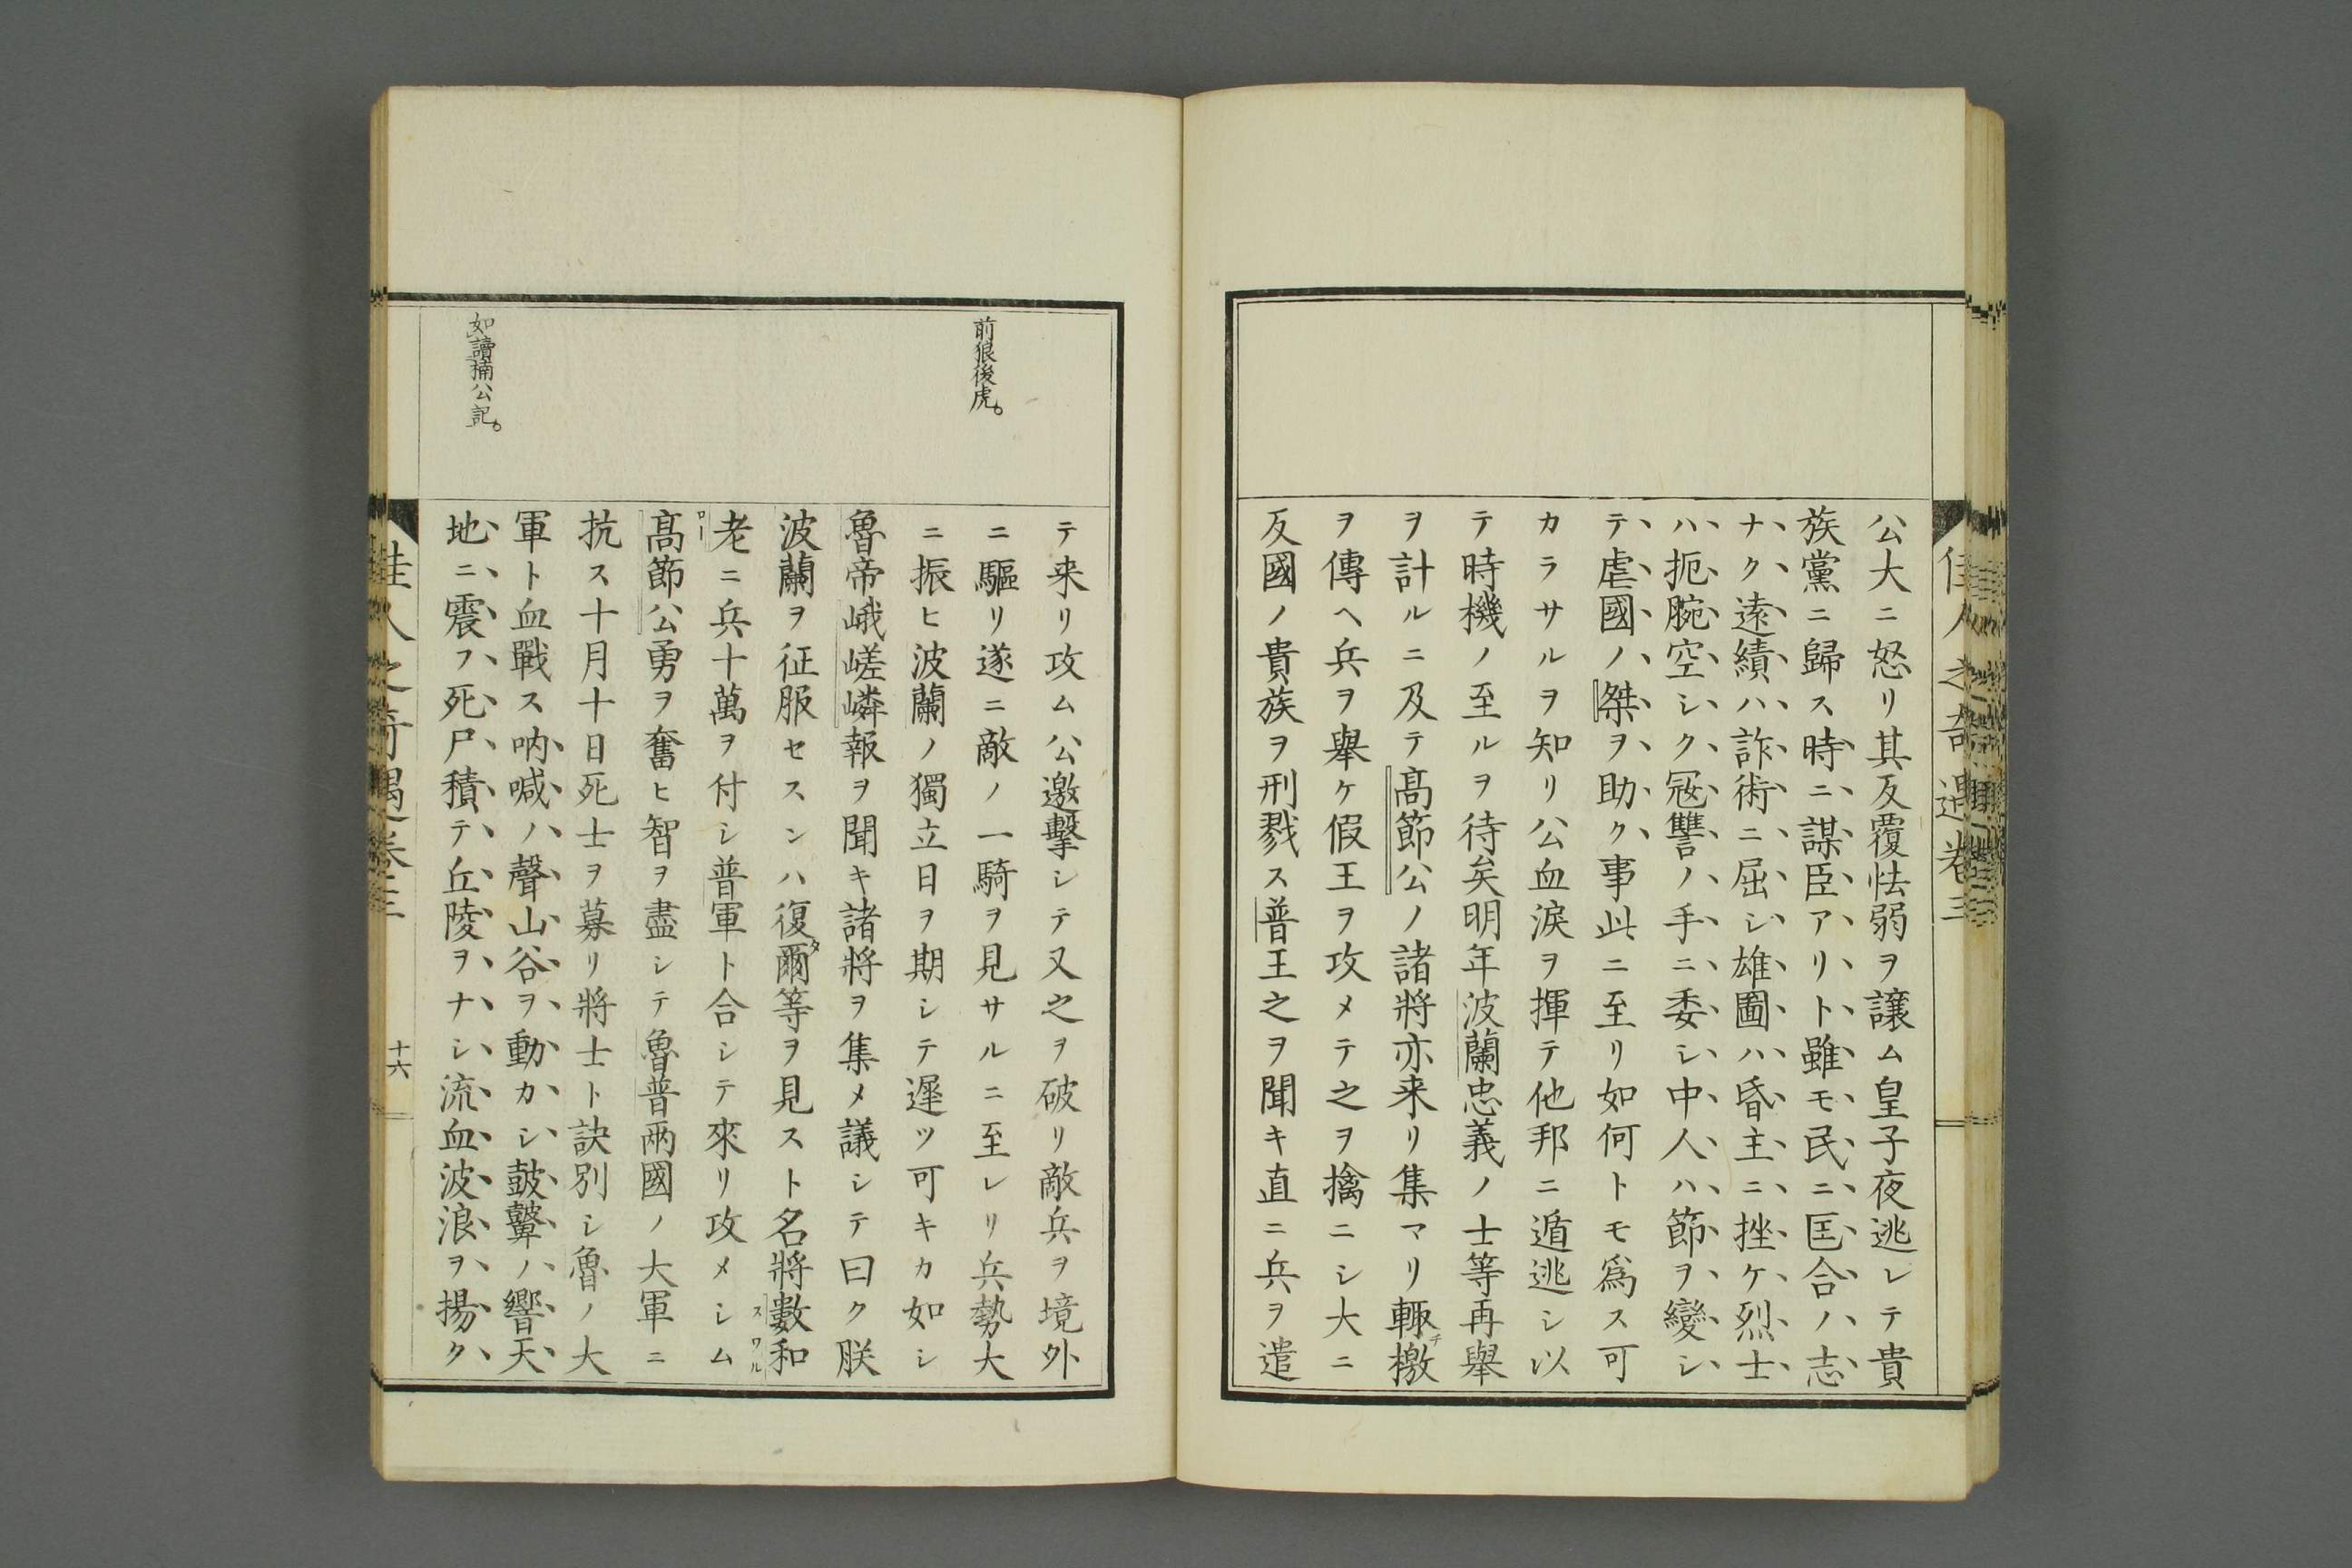 佳人之奇遇卷三
公大ニ怒リ其反覆怯弱ヲ讓ム皇子夜逃レテ貴
族黨ニ歸ス時ニ謀臣アリト雖モ民ニ匡合ノ志
ナク遠績ハ詐術ニ屈シ雄圖ハ昏主ニ挫ケ烈士
ハ扼腕空シク冦讐ノ手ニ委シ中人ハ節ヲ變シ
テ虐國ノ桀ヲ助ク事此ニ至リ如何トモ爲ス可
カラサルヲ知リ公血淚ヲ揮テ他邦ニ遁逃シ以
テ時機ノ至ルヲ待矣明年波蘭忠義ノ士等再舉
ヲ計ルニ及テ髙節公ノ諸將亦来リ集マリ輙チ檄
ヲ傳ヘ兵ヲ舉ケ假王ヲ攻メテ之ヲ擒ニシ大ニ
反國ノ貴族ヲ刑戮ス普王之ヲ聞キ直ニ兵ヲ遣
前狼後虎。
テ来リ攻ム公邀擊シテ又之ヲ破リ敵兵ヲ境外
ニ驅リ遂ニ敵ノ一騎ヲ見サルニ至レリ兵勢大
ニ振ヒ波蘭ノ獨立日ヲ期シテ遲ツ可キカ如シ
魯帝峨嵯嶙報ヲ聞キ諸將ヲ集メ議シテ曰ク朕
波蘭ヲ征服セスンハ復タ爾等ヲ見スト名將數和
スワル
老ニ兵十萬ヲ付シ普軍ト合シテ來リ攻メシム
ロー
髙節公勇ヲ奮ヒ智ヲ盡シテ魯普兩國ノ大軍ニ
抗ス十月十日死士ヲ募リ將士ト訣別シ魯ノ大
軍ト血戰ス吶喊ノ聲山谷ヲ動カシ鼓鼙ノ響天
如讀楠公記。
地ニ震フ死尸積テ丘陵ヲナシ流血波浪ヲ揚ク
佳人之奇遇卷三
十六